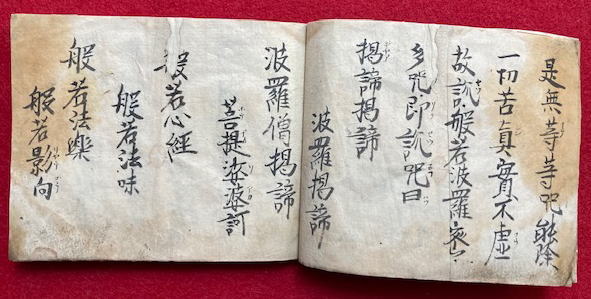 是無等等咒能除
一切苦真實不虛
故説般若波羅蜜
多咒即説咒曰
揭諦揭諦
波羅揭諦
波羅僧揭諦
菩提娑婆訶
般若心經
般若法味
般若法樂
般若影向